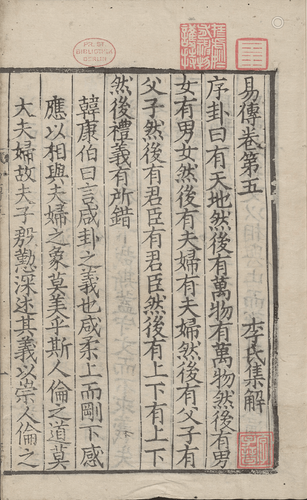 易傳卷第五
李氏集解
序卦曰有天地然後有萬物有萬物然後有男
女有男女然後有夫婦有夫婦然後有父子有
父子然後有君臣有君臣然後有上下有上下
然後禮義有所錯
韓康伯曰言咸卦之義也咸柔上而剛下感
應以相與夫婦之象莫美乎斯人倫之道莫
大夫婦故夫子殷懃深述其義以崇人倫之